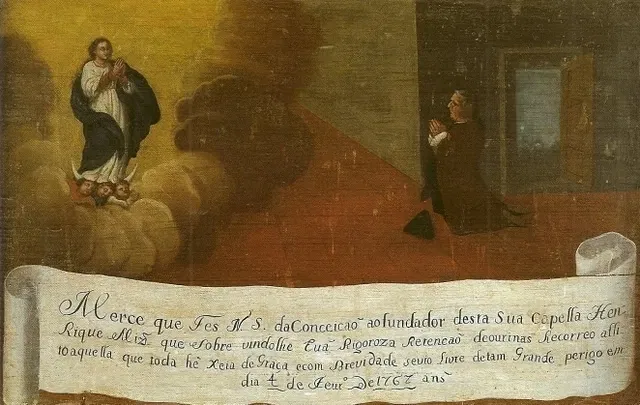 Merce que Fes N. S. da Conceicaõ ao fundador desta Sua Capella Hen-
Rique Miz̃ que Sobre vindolhe Eua Rigoroza Retencaõ deourinas Recorreo alli
to aquella que toda hê Xeia de Graça ecom Brevidade sevio livre detam Grande perigo em
dia 4 de Fevrº De 1767 ans